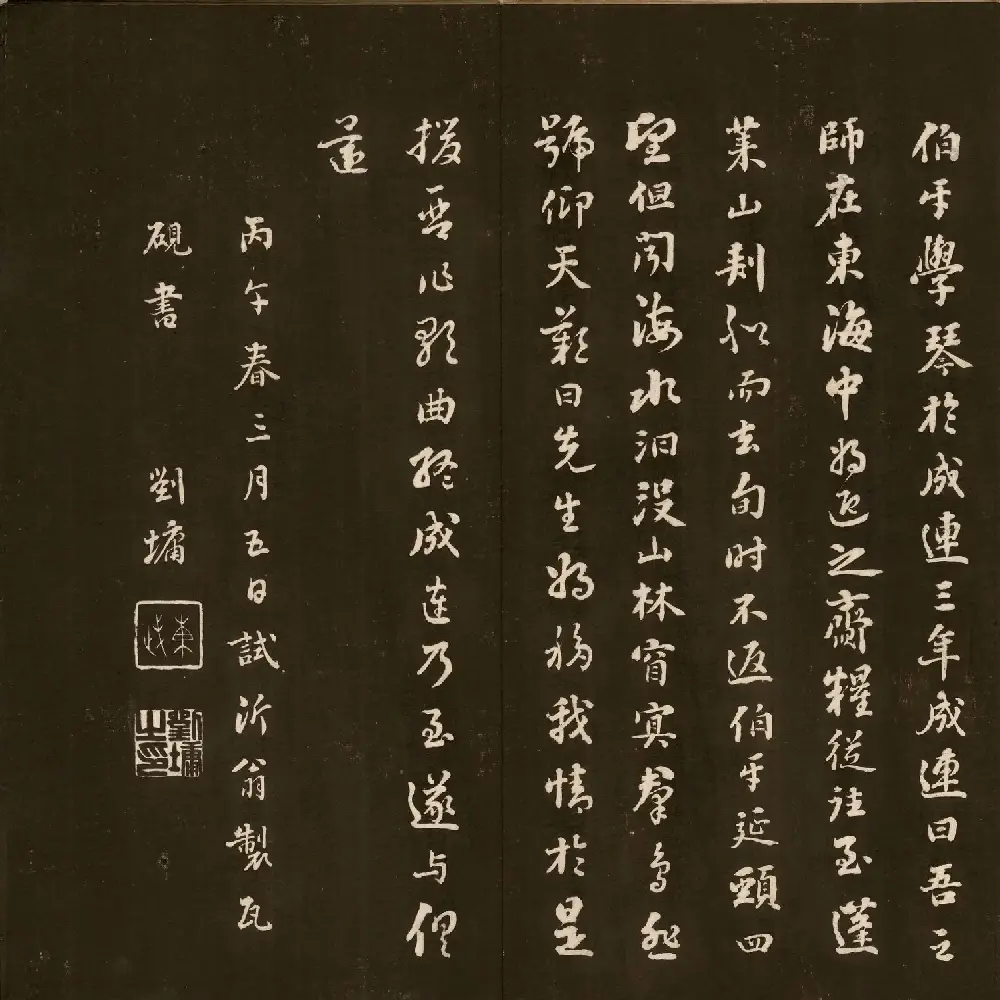 伯牙學琴於成連三年成連曰吾之
師在東海中將迎之齎糧從往至蓬
萊山刺船而去旬时不返伯牙延頸四
望但聞海水汩没山林窅冥羣鳥悲
號仰天歎曰先生將移我情於是
援琴作歌曲終成連乃至遂与俱
還
丙午春三月五日試沂翁製瓦
硯書 劉墉
東武
劉墉之印